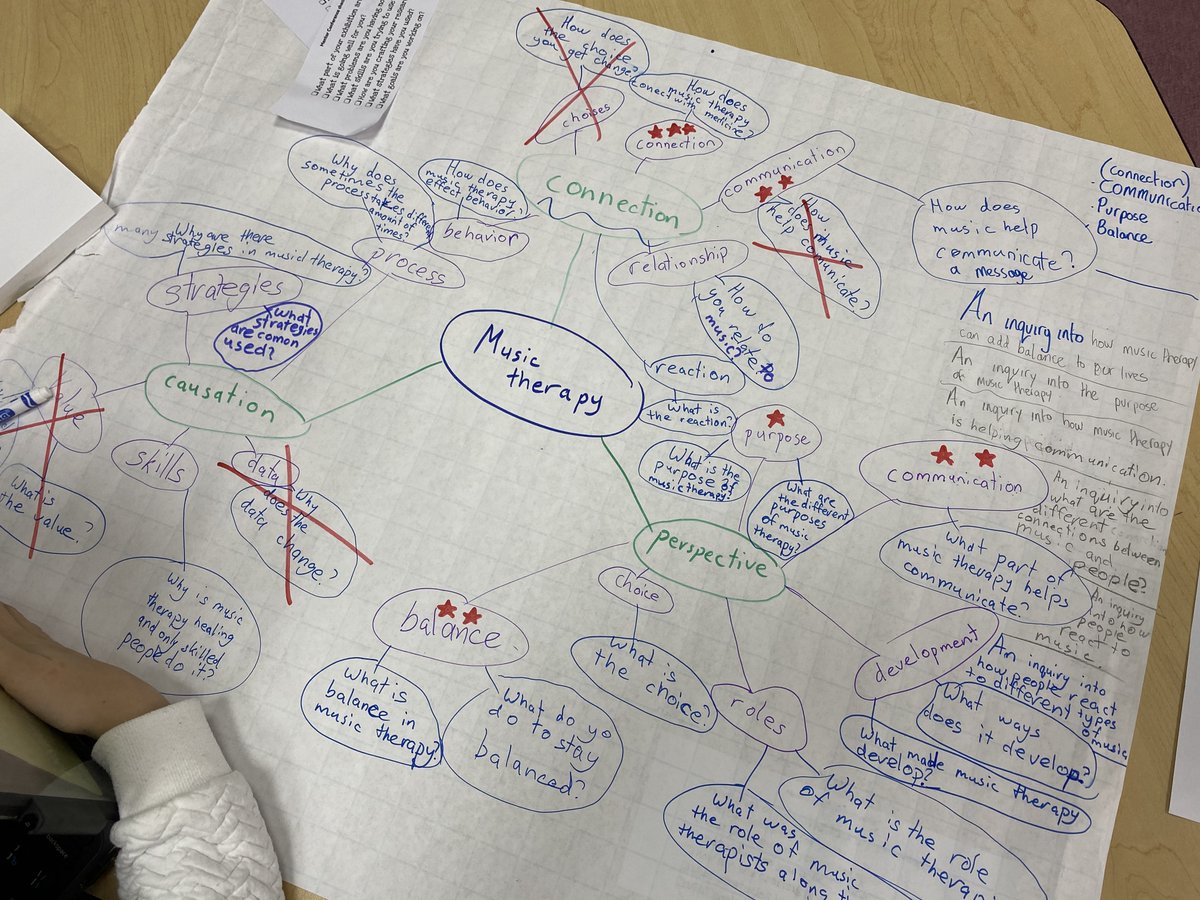 Mentor Conference
What part of your exhibition are
What is going well for you?
What problems are you having now
What skills are you trying to use
How are you crafting your research
What strategies have you used?
What goals are you working on?
How does
the choice
you get change?
choises
How does
music therapy
conect with medicine?
connection
communication
How
does music
help comunicate?
How does
music help
communicate?
a message
(connection)
· Communication
· Purpose
· Balance
connection
Why does
sometimes the
process takes different
amount of
times?
process
How does
music therapy
effect behavior?
behavior
Why are there
many strategies in music therapy?
strategies
What
strategies
are comon
used?
relationship
How do
you relate to
music?
reaction
What is
the reaction?
Music
therapy
causation
What is
the value?
skills
Why is music
therapy healing
and only skilled
people do it?
data
Why
does the
data change?
perspective
purpose
What is the
purpose of
music therapy?
What are
the different
purposes
of music
therapy?
communication
What part of
music therapy helps
communicate?
balance
What is
balance in
music therapy?
What do yo
do to stay
balanced?
choice
What is
the choice?
roles
What was
the role of music
therapists along
What is the role
of music
development
What ways
does it develop?
What made music therapy
develop?
An inquiry into how music therapy
can add balance to our lives
An inquiry into the purpose
of music therapy
An inquiry into how music therapy
is helping communication.
An inquiry into
what are the
different
connections between
music and
people?
An inquiry
into how
people
react to
music.
An inquiry into
how people react
to different types
of music